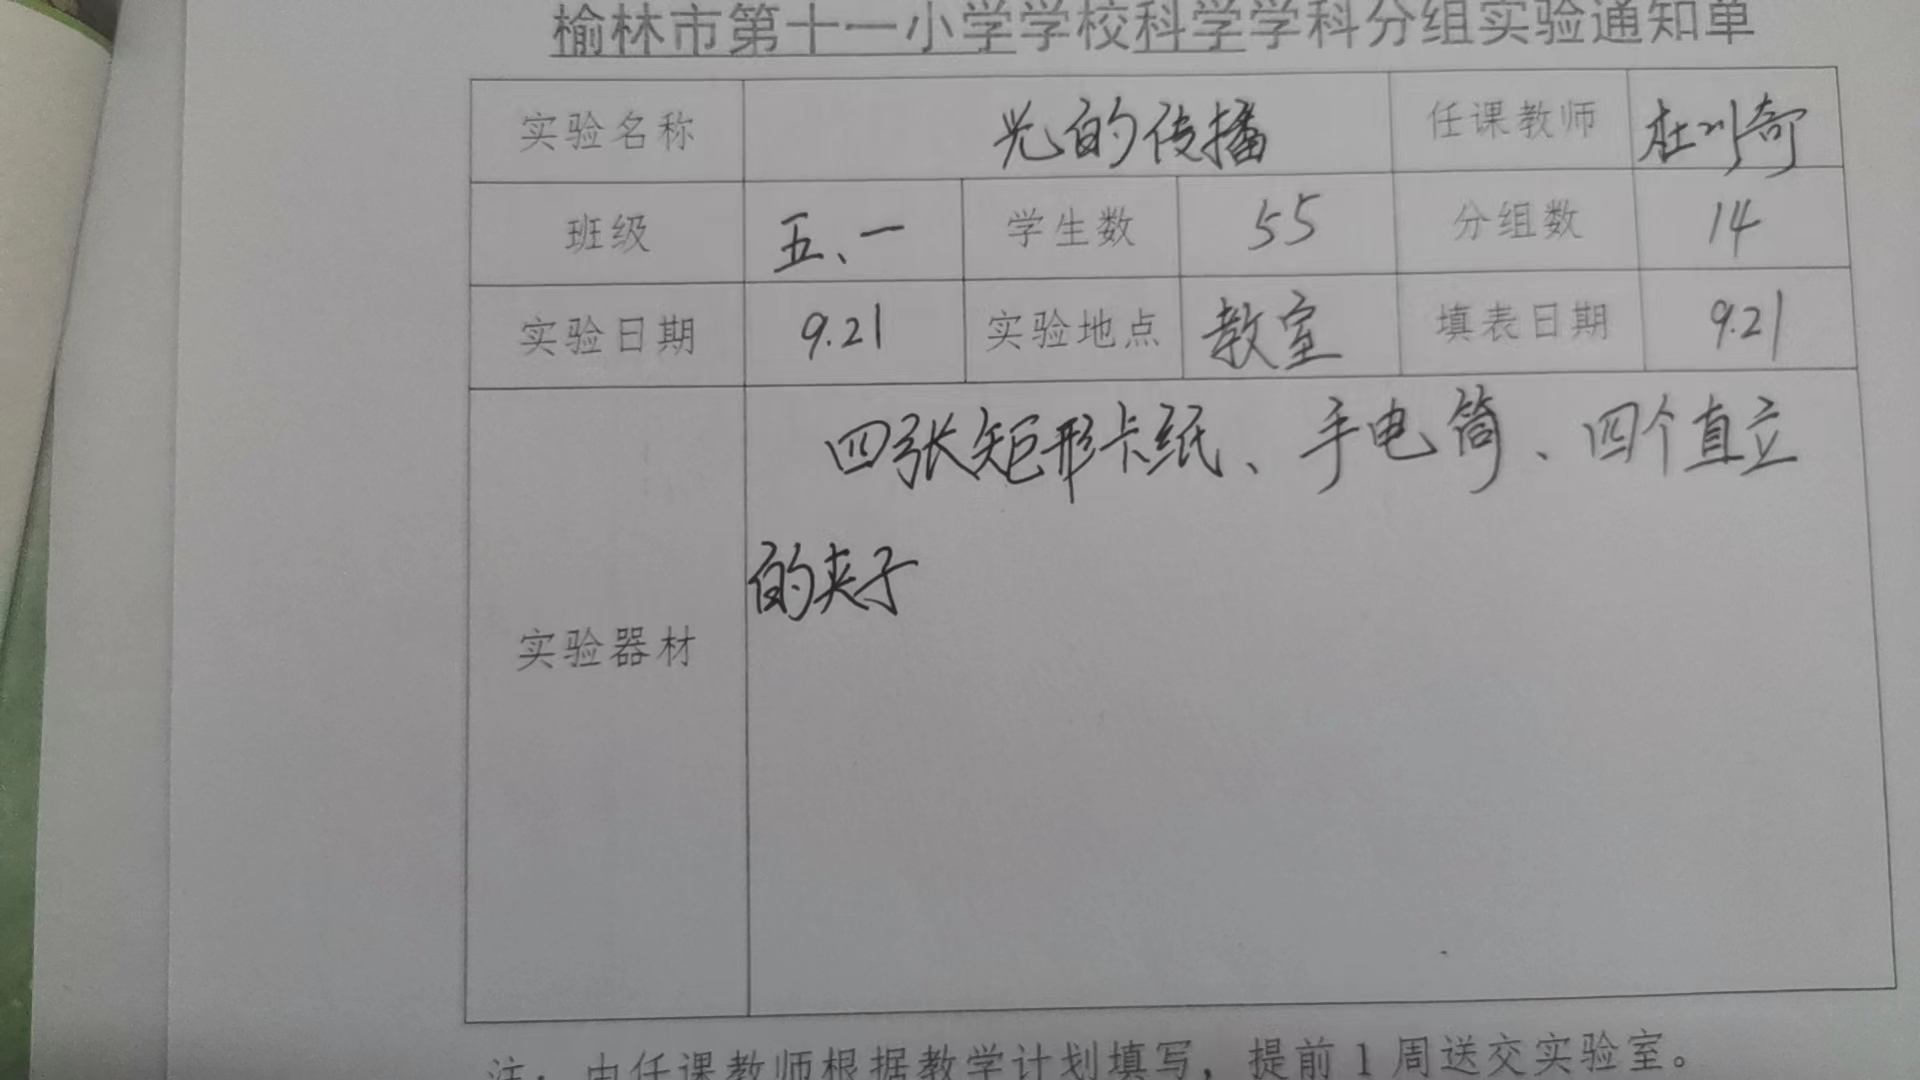 榆林市第十一小学学校科学学科分组实验通知单
实验名称 光的传播 任课教师 杜川奇
班级 五、一 学生数 55 分组数 14
实验日期 9.21 实验地点 教室 填表日期 9.21
四张矩形卡纸、手电筒、四个直立
的夹子
实验器材
注：由任课教师根据教学计划填写，提前1周送交实验室。